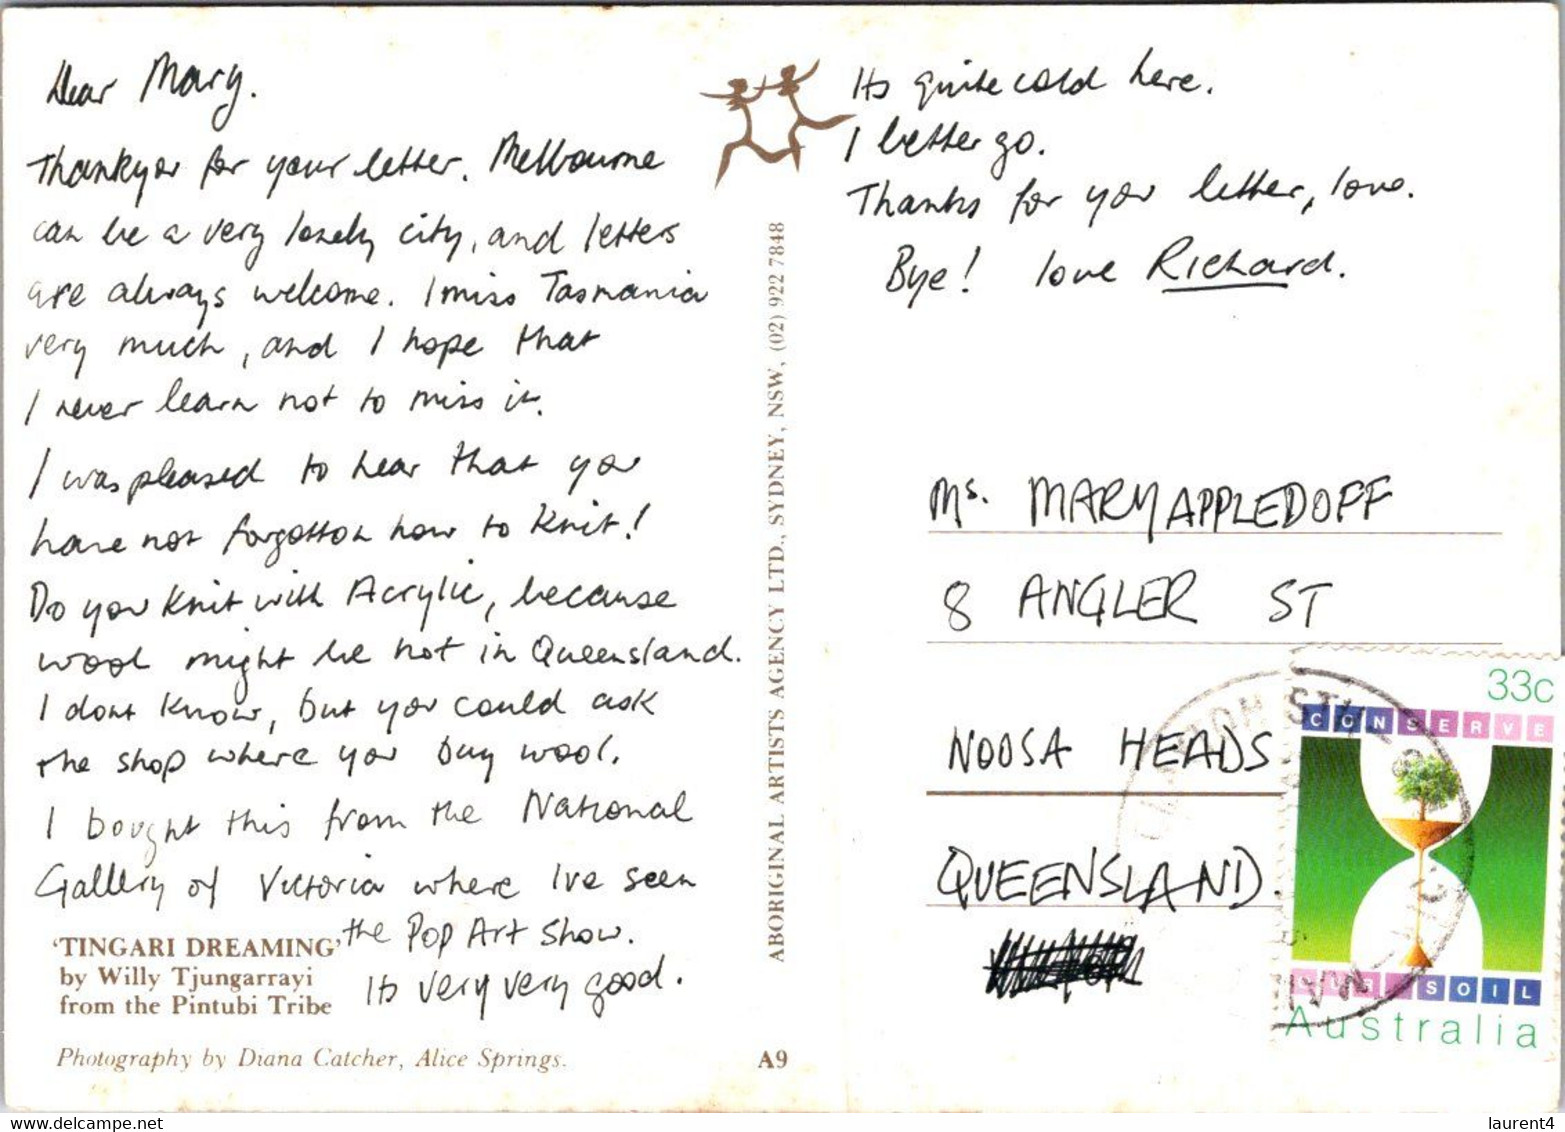 Dear Mary.
Thankyou for your letter. Melbourne
can be a very lonely city, and letters
are always welcome. I miss Tasmania
very much, and I hope that
I never learn not to miss it.
I was pleased to hear that you
have not forgotton how to Knit!
Do you Knit with Acrylic, because
wool might be hot in Queensland.
I dont Know, but you could ask
the shop where you buy wool.
I bought this from the National
Gallery of Victoria where Ive seen
the Pop Art Show.
Its very very good.
'TINGARI DREAMING'
by Willy Tjungarrayi
from the Pintubi Tribe
Photography by Diana Catcher, Alice Springs.
A9
ABORIGINAL ARTISTS AGENCY LTD., SYDNEY, NSW, (02) 922 7848
Its quite cold here.
I better go.
Thanks for you letter, love.
Bye! love Richard.
Ms. MARY APPLEDOFF
8 ANGLER ST
NOOSA HEADS
QUEENSLAND.
33c
CONSERVE
OUR SOIL
Australia
https://www.delcampe.net
laurent4